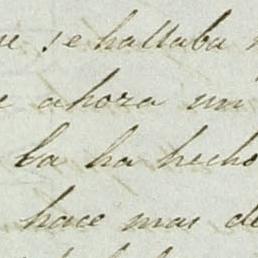 se hallaba
ahora un
la ha hecho
hace mas de